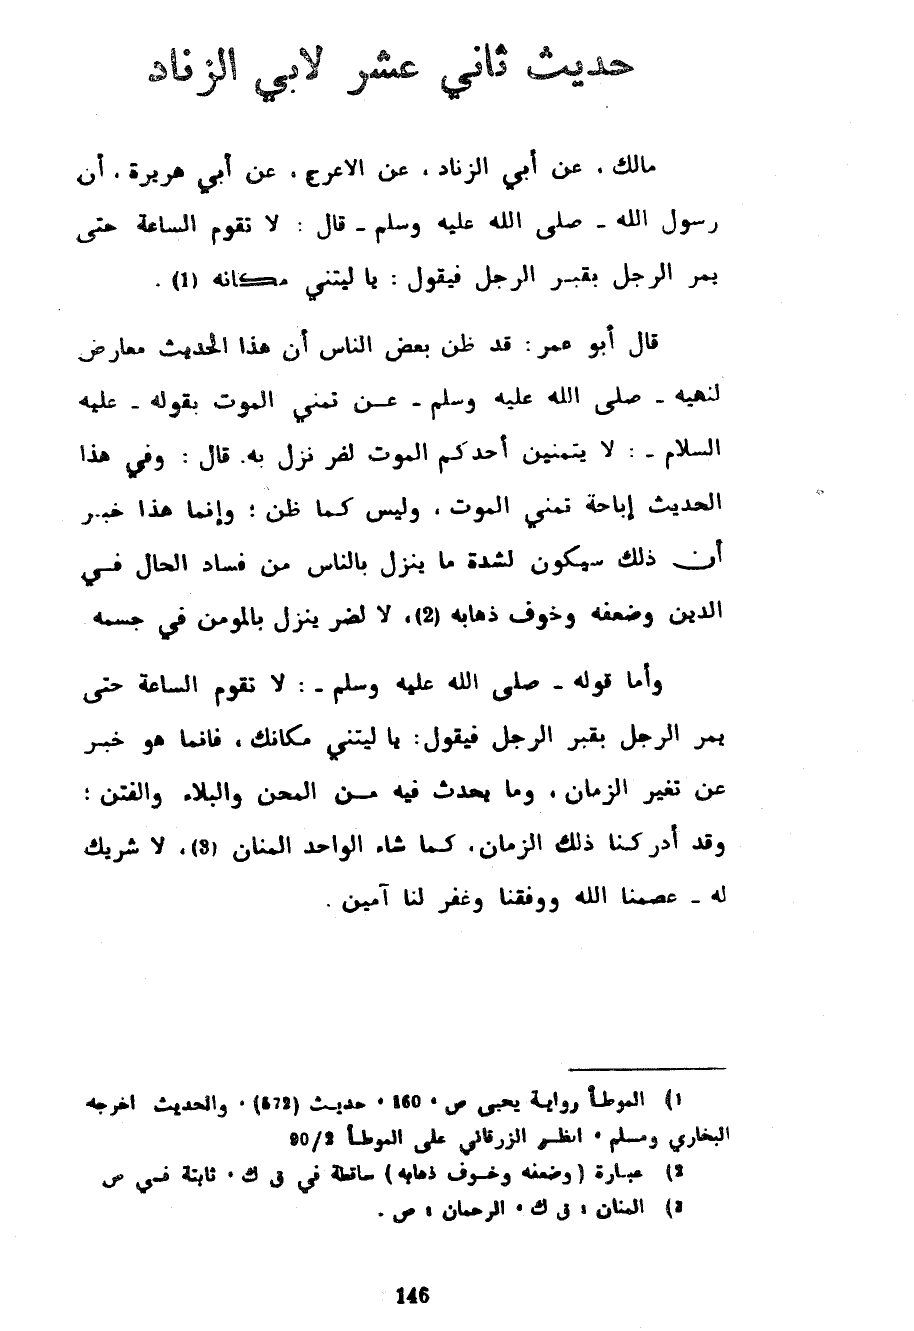 حديث ثاني عشر لابي الزناد
مالك ، عن أبي الزناد ، عن الاعرج ، عن أبي هريرة ، أن
رسول الله ـ صلى الله عليه وسلم ـ قال : لا تقوم الساعة حتى
يمر الرجل بقبر الرجل فيقول : يا ليتني مكانه (1) .
قال أبو عمر : قد ظن بعض الناس أن هذا الحديث معارض
لنهيه ـ صلى الله عليه وسلم ـ عن تمني الموت بقوله ـ عليه
السلام ـ : لا يتمنين أحدكم الموت لضر نزل به. قال : وفي هذا
الحديث إباحة تمني الموت ، وليس كما ظن ؛ وإنما هذا خبر
أن ذلك سيكون لشدة ما ينزل بالناس من فساد الحال في
الدين وضعفه وخوف ذهابه (2)، لا لضر ينزل بالمومن في جسمه
وأما قوله ـ صلى الله عليه وسلم ـ : لا تقوم الساعة حتى
يمر الرجل بقبر الرجل فيقول : يا ليتني مكانك ، فانما هو خبر
عن تغير الزمان ، وما يحدث فيه من المحن والبلاء والفتن ؛
وقد أدركنا ذلك الزمان ، كما شاء الواحد المنان (3)، لا شريك
له ـ عصمنا الله ووفقنا وغفر لنا آمين .
1) الموطأ رواية يحيى ص 160 ، حديث (572) ، والحديث اخرجه
البخاري ومسلم ، انظر الزرقاني على الموطأ 90/2
2) عبارة (وضعفه وخوف ذهابه) ساقطة في ق ك ، ثابتة في ص
3) المنان : ق ك ، الرحمان : ص .
146